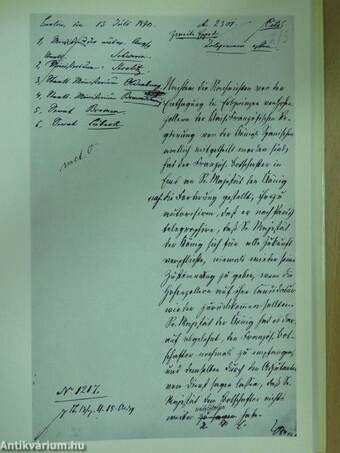 Berlin den 13 Juli 1870.
A. 2301.
1,
Schwerin
2,
Strelitz
3, Staats Ministerium Oldenburg
4, Staats Ministerium Braunschweig
5, Senat Bremen
6, Senat Lübeck
Nachdem die Nachrichten von der
Entsagung des Erbprinzen von Hohen-
zollern der Kais. Französischen Re-
gierung von der Königl. Spanischen
amtlich mitgetheilt worden sind,
hat der Französ. Botschafter in
Ems an S. Majestät den König
noch die Forderung gestellt, ihn zu
autorisiren, daß er nach Paris
telegraphire, daß S. Majestät
der König sich für alle Zukunft
verpflichte, niemals wieder seine
Zustimmung zu geben, wenn die
Hohenzollern auf ihre Candidatur
wieder zurückkommen sollten.
Se. Majestät der König hat es dar-
auf abgelehnt, den Französ. Bot-
schafter nochmals zu empfangen,
und demselben durch den Adjutanten
vom Dienst sagen lassen, daß S.
Majestät dem Botschafter nichts
weiter mitzutheilen habe.
No 1217.
Antikvárium.hu